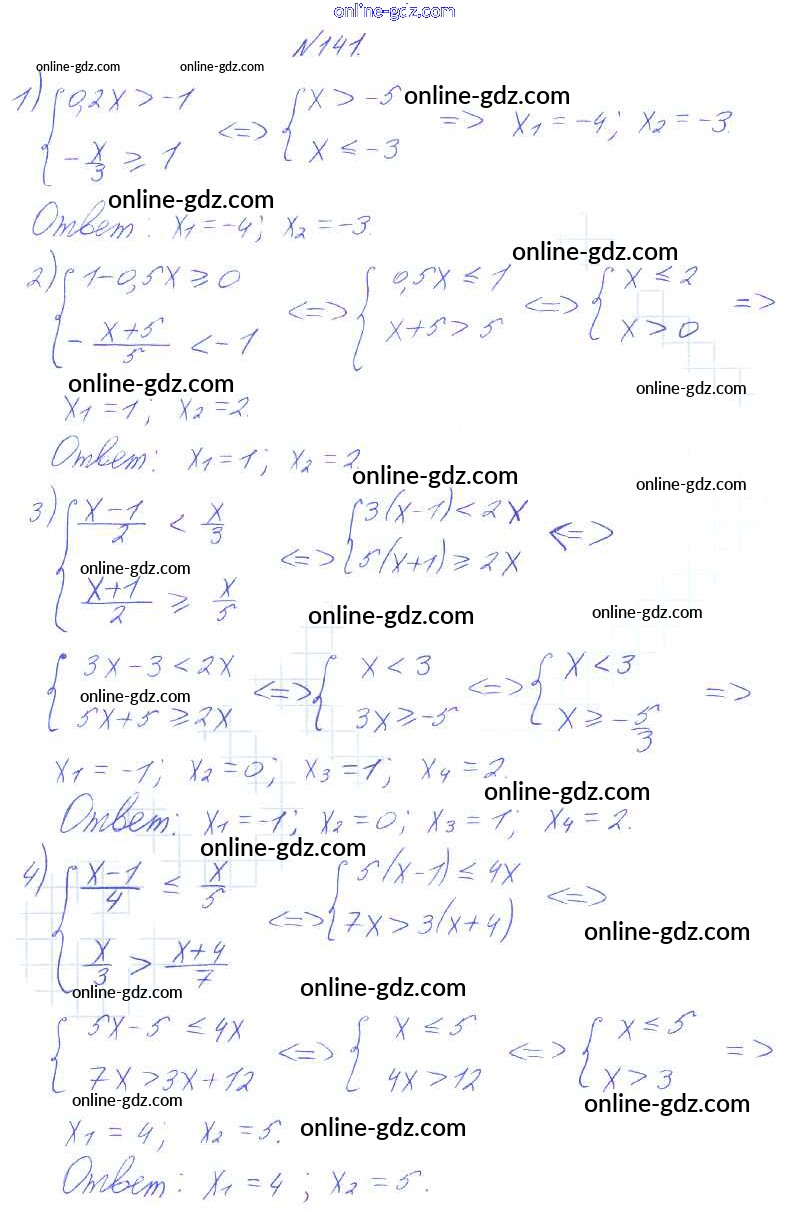 online-gdz.com
N141.
online-gdz.com online-gdz.com
1) { 0,2x > -1 <=> { x > -5 online-gdz.com => x₁ = -4; x₂ = -3.
-x/3 ≥ 1 x ≤ -3
online-gdz.com
Ответ: x₁ = -4; x₂ = -3.
online-gdz.com
2) { 1-0,5x ≥ 0 <=> { 0,5x ≤ 1 <=> { x ≤ 2 =>
- (x+5)/5 < -1 x+5 > 5 x > 0
online-gdz.com online-gdz.com
x₁ = 1; x₂ = 2.
Ответ: x₁ = 1; x₂ = 2.
online-gdz.com online-gdz.com
3) { (x-1)/2 < x/3 <=> { 3(x-1) < 2x <=>
online-gdz.com
(x+1)/2 ≥ x/5 5(x+1) ≥ 2x
online-gdz.com online-gdz.com
{ 3x-3 < 2x <=> { x < 3 <=> { x < 3 =>
online-gdz.com
5x+5 ≥ 2x 3x ≥ -5 x ≥ -5/3
x₁ = -1; x₂ = 0; x₃ = 1; x₄ = 2.
online-gdz.com
Ответ: x₁ = -1; x₂ = 0; x₃ = 1; x₄ = 2.
online-gdz.com
4) { (x-1)/4 ≤ x/5 <=> { 5(x-1) ≤ 4x <=>
x/3 > (x+4)/7 7x > 3(x+4)
online-gdz.com
online-gdz.com online-gdz.com
{ 5x-5 ≤ 4x <=> { x ≤ 5 <=> { x ≤ 5 =>
7x > 3x+12 4x > 12 x > 3
online-gdz.com online-gdz.com
x₁ = 4; x₂ = 5. online-gdz.com
Ответ: x₁ = 4; x₂ = 5.